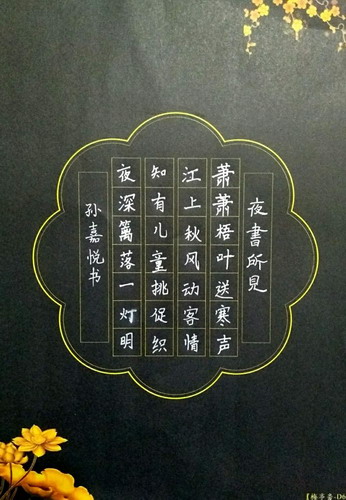 夜書所見
萧萧梧叶送寒声
江上秋风动客情
知有儿童挑促织
夜深篱落一灯明
孙嘉悦书